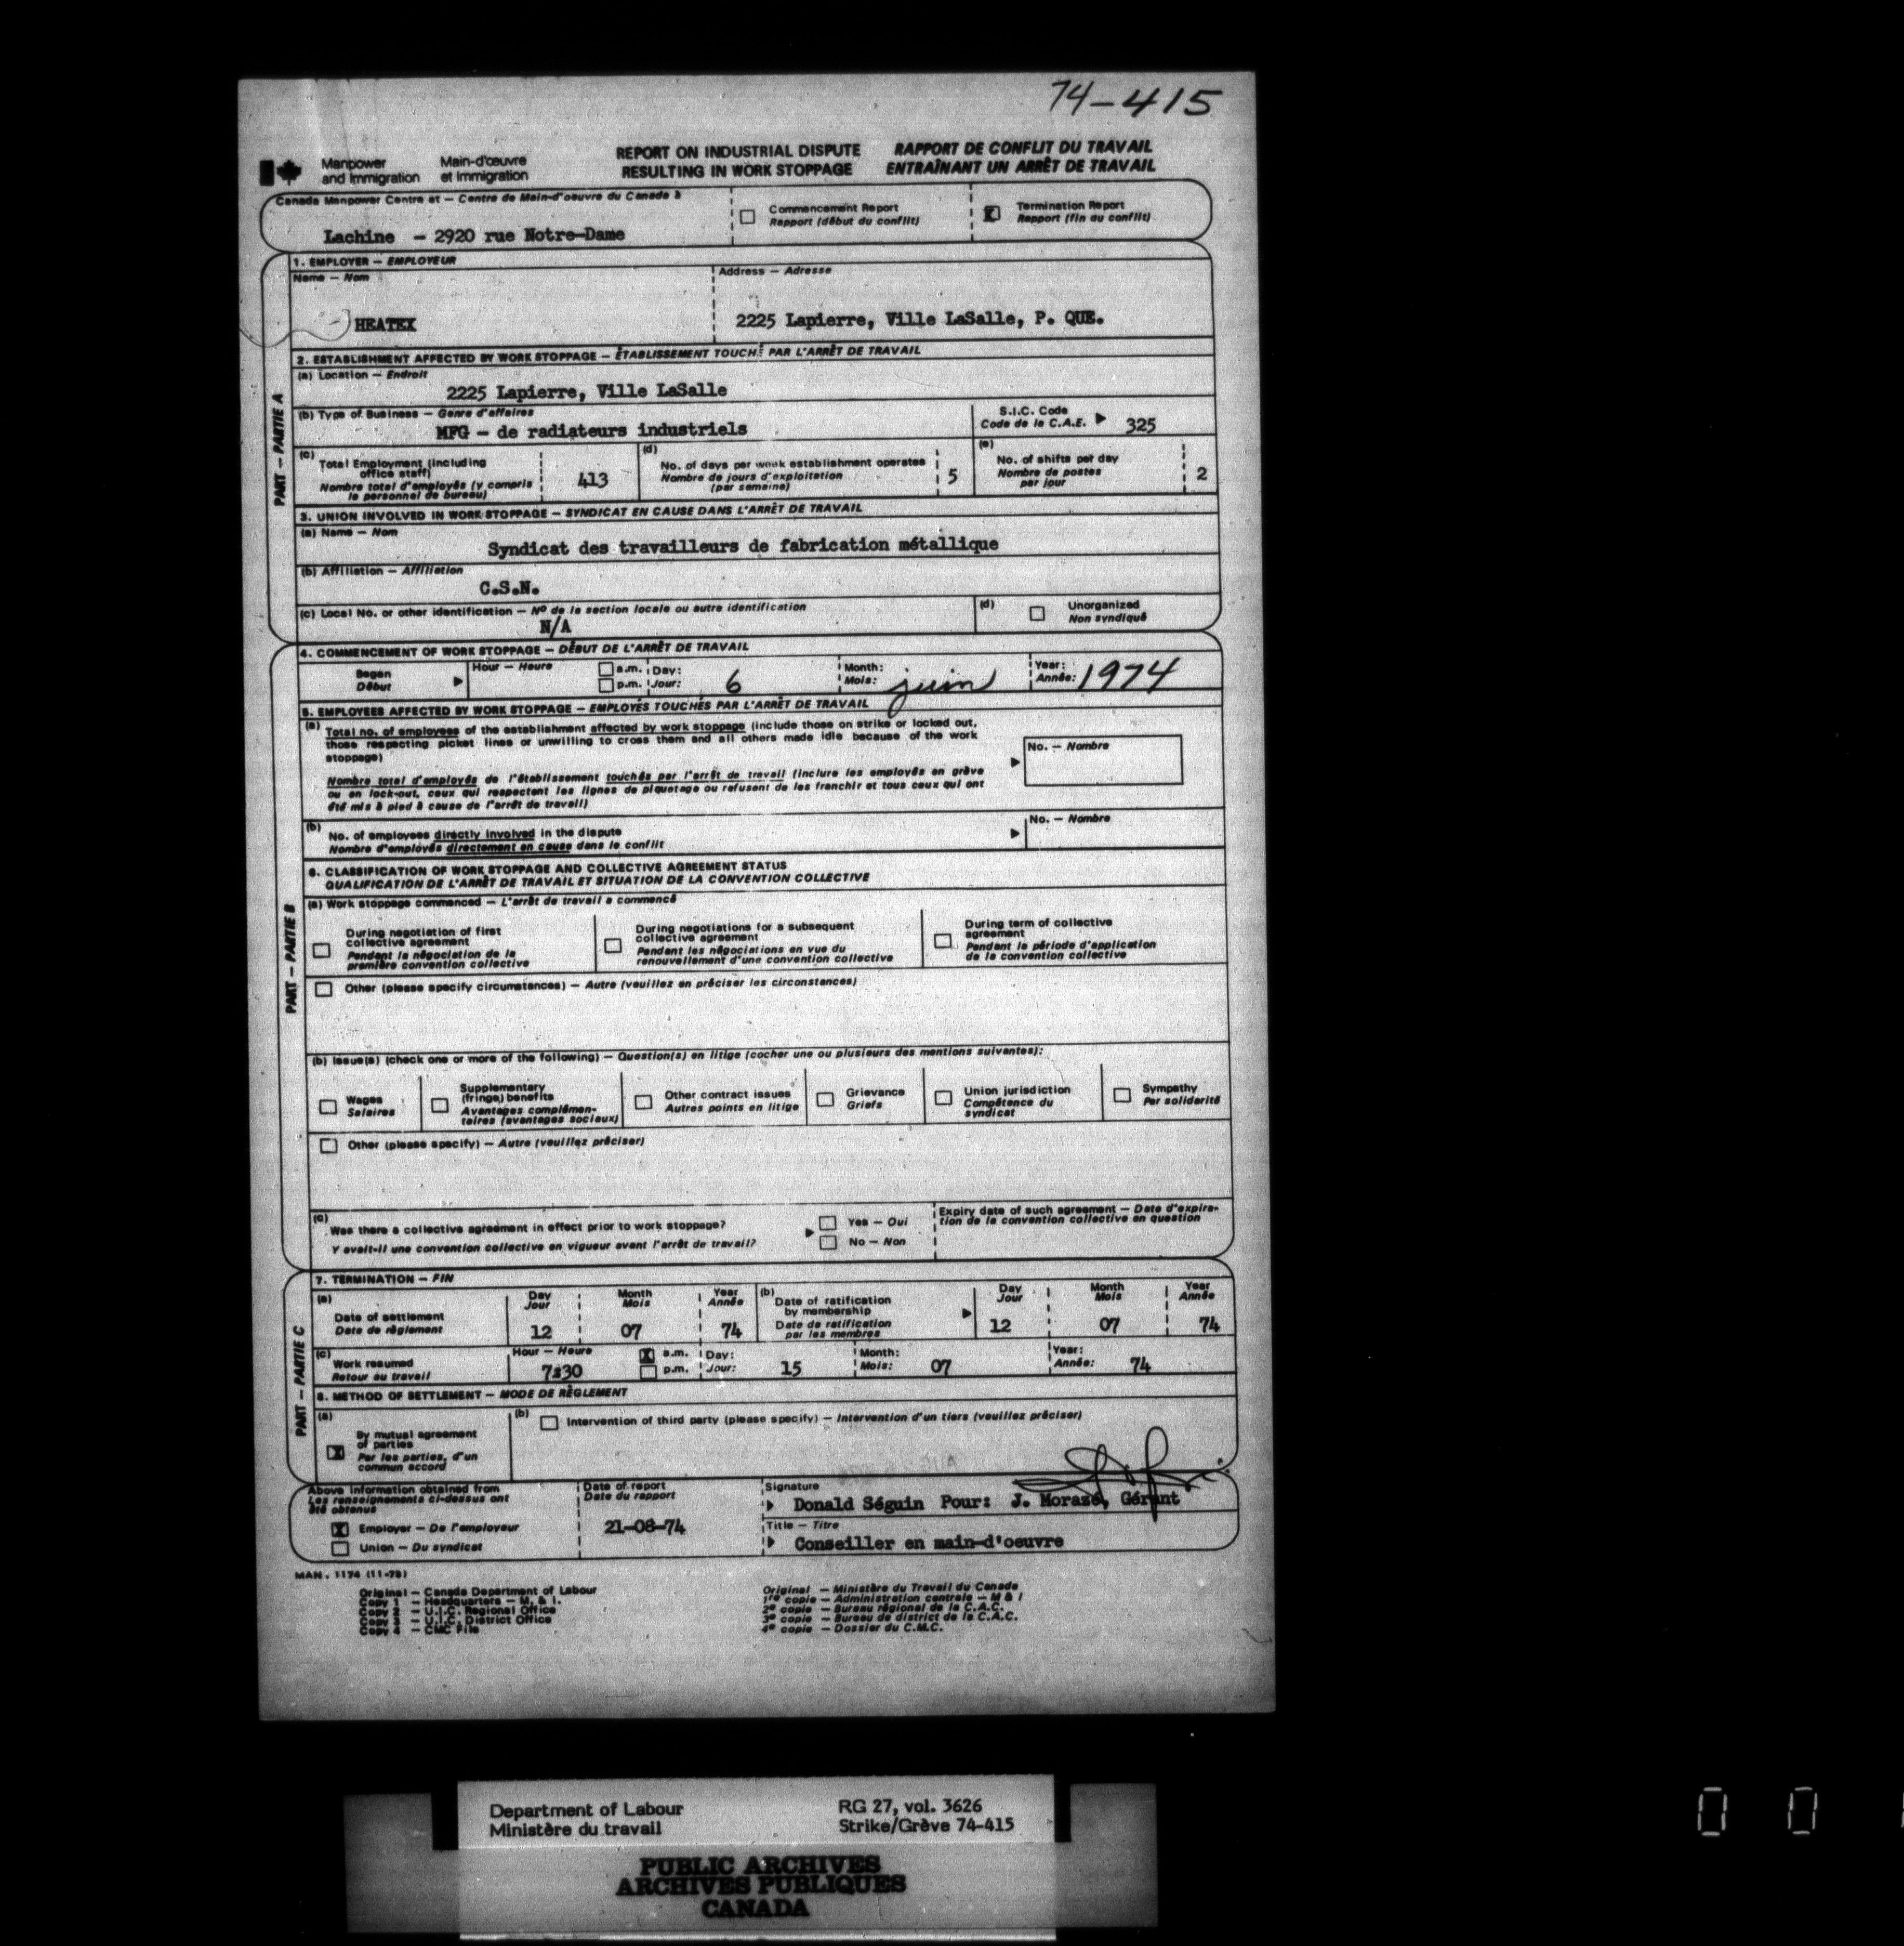 74-415
Manpower and Immigration
Main-d'œuvre et Immigration
REPORT ON INDUSTRIAL DISPUTE RESULTING IN WORK STOPPAGE
RAPPORT DE CONFLIT DU TRAVAIL ENTRAÎNANT UN ARRÊT DE TRAVAIL
Canada Manpower Centre at — Centre de Main-d'oeuvre du Canada à
Lachine - 2920 rue Notre-Dame
Commencement Report
Rapport (début du conflit)
X Termination Report
Rapport (fin du conflit)
PART - PARTIE A
1. EMPLOYER — EMPLOYEUR
Name — Nom
HEATEX
Address — Adresse
2225 Lapierre, Ville LaSalle, P. QUE.
2. ESTABLISHMENT AFFECTED BY WORK STOPPAGE — ÉTABLISSEMENT TOUCHÉ PAR L'ARRÊT DE TRAVAIL
(a) Location — Endroit
2225 Lapierre, Ville LaSalle
(b) Type of Business — Genre d'affaires
MFG - de radiateurs industriels
S.I.C. Code
Code de la C.A.E.
325
(c) Total Employment (including office staff)
Nombre total d'employés (y compris le personnel de bureau)
413
(d) No. of days per week establishment operates
Nombre de jours d'exploitation (par semaine)
5
(e) No. of shifts per day
Nombre de postes par jour
2
3. UNION INVOLVED IN WORK STOPPAGE — SYNDICAT EN CAUSE DANS L'ARRÊT DE TRAVAIL
(a) Name — Nom
Syndicat des travailleurs de fabrication métallique
(b) Affiliation — Affiliation
C.S.N.
(c) Local No. or other identification — Nº de la section locale ou autre identification
N/A
(d) Unorganized
Non syndiqué
PART - PARTIE B
4. COMMENCEMENT OF WORK STOPPAGE — DÉBUT DE L'ARRÊT DE TRAVAIL
Began
Début
Hour — Heure
a.m.
p.m.
Day:
Jour:
6
Month:
Mois:
juin
Year:
Année:
1974
5. EMPLOYEES AFFECTED BY WORK STOPPAGE — EMPLOYÉS TOUCHÉS PAR L'ARRÊT DE TRAVAIL
(a) Total no. of employees of the establishment affected by work stoppage (include those on strike or locked out,
those respecting picket lines or unwilling to cross them and all others made idle because of the work
stoppage)
Nombre total d'employés de l'établissement touchés par l'arrêt de travail (inclure les employés en grève
ou en lock-out, ceux qui respectent les lignes de piquetage ou refusent de les franchir et tous ceux qui ont
été mis à pied à cause de l'arrêt de travail)
No. — Nombre
(b) No. of employees directly involved in the dispute
Nombre d'employés directement en cause dans le conflit
No. — Nombre
6. CLASSIFICATION OF WORK STOPPAGE AND COLLECTIVE AGREEMENT STATUS
QUALIFICATION DE L'ARRÊT DE TRAVAIL ET SITUATION DE LA CONVENTION COLLECTIVE
(a) Work stoppage commenced — L'arrêt de travail a commencé
During negotiation of first collective agreement
Pendant la négociation de la première convention collective
During negotiations for a subsequent collective agreement
Pendant les négociations en vue du renouvellement d'une convention collective
During term of collective agreement
Pendant la période d'application de la convention collective
Other (please specify circumstances) — Autre (veuillez en préciser les circonstances)
(b) Issue(s) (check one or more of the following) — Question(s) en litige (cocher une ou plusieurs des mentions suivantes):
Wages
Salaires
Supplementary (fringe) benefits
Avantages complémentaires (avantages sociaux)
Other contract issues
Autres points en litige
Grievance
Griefs
Union jurisdiction
Compétence du syndicat
Sympathy
Par solidarité
Other (please specify) — Autre (veuillez préciser)
(c) Was there a collective agreement in effect prior to work stoppage?
Y avait-il une convention collective en vigueur avant l'arrêt de travail?
Yes — Oui
No — Non
Expiry date of such agreement — Date d'expiration de la convention collective en question
PART - PARTIE C
7. TERMINATION — FIN
(a) Date of settlement
Date de règlement
Day
Jour
12
Month
Mois
07
Year
Année
74
(b) Date of ratification by membership
Date de ratification par les membres
Day
Jour
12
Month
Mois
07
Year
Année
74
(c) Work resumed
Retour au travail
Hour — Heure
7:30
X a.m.
p.m.
Day:
Jour:
15
Month:
Mois:
07
Year:
Année:
74
8. METHOD OF SETTLEMENT — MODE DE RÈGLEMENT
(a) X By mutual agreement of parties
Par les parties, d'un commun accord
(b) Intervention of third party (please specify) — Intervention d'un tiers (veuillez préciser)
Above information obtained from
Les renseignements ci-dessus ont été obtenus
X Employer — De l'employeur
Union — Du syndicat
Date of report
Date du rapport
21-08-74
Signature
Donald Séguin Pour: J. Morazé, Gérant
Title — Titre
Conseiller en main-d'oeuvre
MAN. 1174 (11-73)
Original — Canada Department of Labour
Copy 1 — Headquarters — M. & I.
Copy 2 — U.I.C. Regional Office
Copy 3 — U.I.C. District Office
Copy 4 — CMC File
Original — Ministère du Travail du Canada
1re copie — Administration centrale — M & I
2e copie — Bureau régional de la C.A.C.
3e copie — Bureau de district de la C.A.C.
4e copie — Dossier du C.M.C.
Department of Labour
Ministère du travail
RG 27, vol. 3626
Strike/Grève 74-415
PUBLIC ARCHIVES
ARCHIVES PUBLIQUES
CANADA
0 0